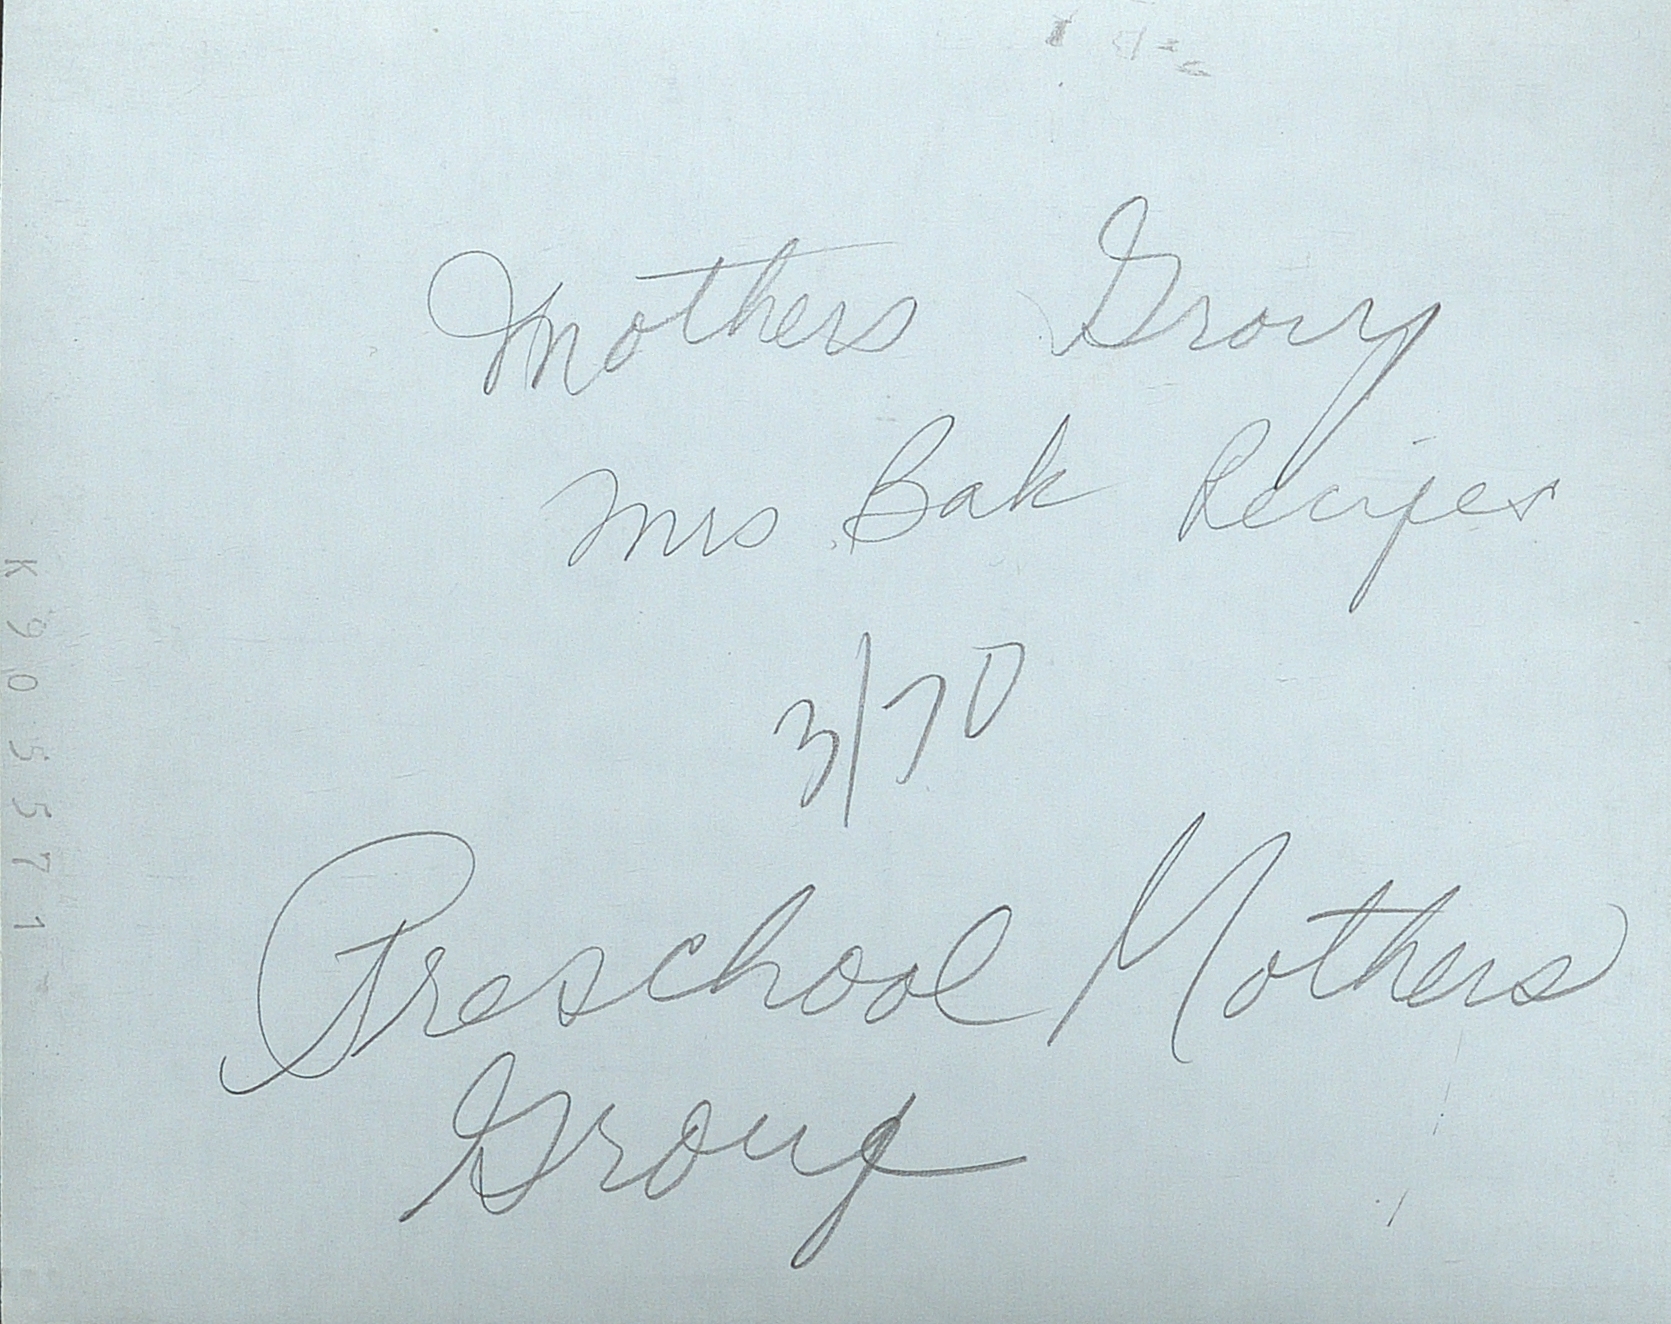 Mothers Group
Mrs Bak Recipes
3/70
Preschool Mothers
Group
K905571